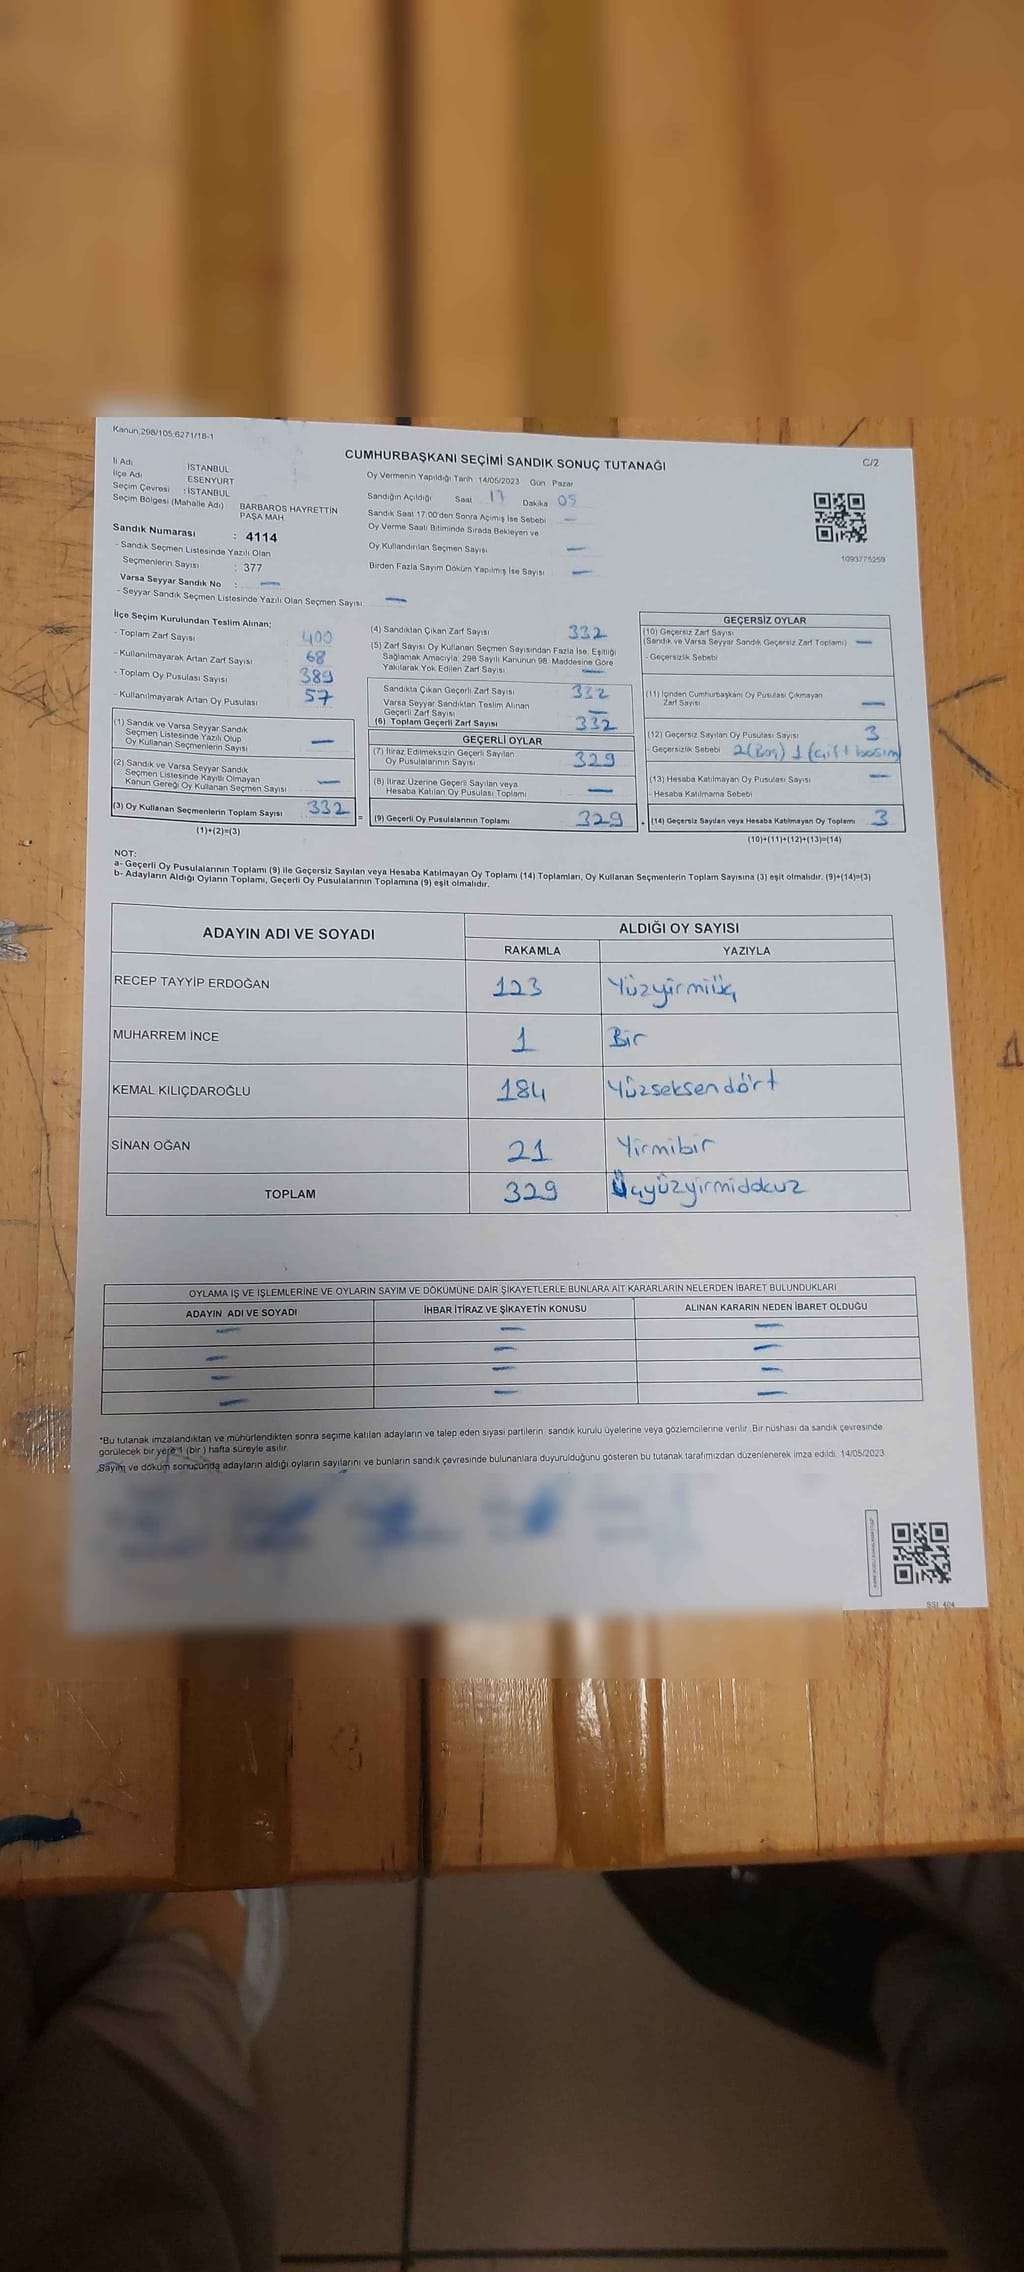 Kanun,298/105,6271/18-1
CUMHURBAŞKANI SEÇİMİ SANDIK SONUÇ TUTANAĞI
C/2
İl Adı İSTANBUL
İlçe Adı ESENYURT
Seçim Çevresi : İSTANBUL
Seçim Bölgesi (Mahalle Adı) BARBAROS HAYRETTİN
PAŞA MAH
Sandık Numarası : 4114
- Sandık Seçmen Listesinde Yazılı Olan
Seçmenlerin Sayısı : 377
Varsa Seyyar Sandık No : —
- Seyyar Sandık Seçmen Listesinde Yazılı Olan Seçmen Sayısı: —
Oy Vermenin Yapıldığı Tarih 14/05/2023 Gün Pazar
Sandığın Açıldığı Saat 17 Dakika 05
Sandık Saat 17:00'den Sonra Açımış İse Sebebi —
Oy Verme Saati Bitiminde Sırada Bekleyen ve
Oy Kullandırılan Seçmen Sayısı —
Birden Fazla Sayım Döküm Yapılmış İse Sayısı —
1093775259
İlçe Seçim Kurulundan Teslim Alınan:
- Toplam Zarf Sayısı 400
- Kullanılmayarak Artan Zarf Sayısı 68
- Toplam Oy Pusulası Sayısı 389
- Kullanılmayarak Artan Oy Pusulası 57
(1) Sandık ve Varsa Seyyar Sandık
Seçmen Listesinde Yazılı Olup
Oy Kullanan Seçmenlerin Sayısı —
(2) Sandık ve Varsa Seyyar Sandık
Seçmen Listesinde Kayıtlı Olmayan
Kanun Gereği Oy Kullanan Seçmen Sayısı —
(3) Oy Kullanan Seçmenlerin Toplam Sayısı 332
(1)+(2)=(3)
=
(4) Sandıktan Çıkan Zarf Sayısı 332
(5) Zarf Sayısı Oy Kullanan Seçmen Sayısından Fazla İse, Eşitliği
Sağlamak Amacıyla, 298 Sayılı Kanunun 98. Maddesine Göre
Yakılarak Yok Edilen Zarf Sayısı —
Sandıkta Çıkan Geçerli Zarf Sayısı 332
Varsa Seyyar Sandıktan Teslim Alınan
Geçerli Zarf Sayısı —
(6) Toplam Geçerli Zarf Sayısı 332
GEÇERLİ OYLAR
(7) İtiraz Edilmeksizin Geçerli Sayılan
Oy Pusulalarının Sayısı 329
(8) İtiraz Üzerine Geçerli Sayılan veya
Hesaba Katılan Oy Pusulası Toplamı —
(9) Geçerli Oy Pusulalarının Toplamı 329
GEÇERSİZ OYLAR
(10) Geçersiz Zarf Sayısı
(Sandık ve Varsa Seyyar Sandık Geçersiz Zarf Toplamı) —
- Geçersizlik Sebebi
(11) İçinden Cumhurbaşkanı Oy Pusulası Çıkmayan
Zarf Sayısı —
(12) Geçersiz Sayılan Oy Pusulası Sayısı 3
- Geçersizlik Sebebi 2(Boş) 1 (çift basım)
(13) Hesaba Katılmayan Oy Pusulası Sayısı —
- Hesaba Katılmama Sebebi
(14) Geçersiz Sayılan veya Hesaba Katılmayan Oy Toplamı 3
(10)+(11)+(12)+(13)=(14)
NOT:
a- Geçerli Oy Pusulalarının Toplamı (9) ile Geçersiz Sayılan veya Hesaba Katılmayan Oy Toplamı (14) Toplamları, Oy Kullanan Seçmenlerin Toplam Sayısına (3) eşit olmalıdır. (9)+(14)=(3)
b- Adayların Aldığı Oyların Toplamı, Geçerli Oy Pusulalarının Toplamına (9) eşit olmalıdır.
ADAYIN ADI VE SOYADI
ALDIĞI OY SAYISI
RAKAMLA YAZIYLA
RECEP TAYYİP ERDOĞAN 123 Yüzyirmiüç
MUHARREM İNCE 1 Bir
KEMAL KILIÇDAROĞLU 184 Yüzseksendört
SİNAN OĞAN 21 Yirmibir
TOPLAM 329 Üçyüzyirmidokuz
OYLAMA İŞ VE İŞLEMLERİNE VE OYLARIN SAYIM VE DÖKÜMÜNE DAİR ŞİKAYETLERLE BUNLARA AİT KARARLARIN NELERDEN İBARET BULUNDUKLARI
ADAYIN ADI VE SOYADI İHBAR İTİRAZ VE ŞİKAYETİN KONUSU ALINAN KARARIN NEDEN İBARET OLDUĞU
— — —
— — —
— — —
— — —
*Bu tutanak imzalandıktan ve mühürlendikten sonra seçime katılan adayların ve talep eden siyasi partilerin sandık kurulu üyelerine veya gözlemcilerine verilir. Bir nüshası da sandık çevresinde
görülecek bir yere 1 (bir ) hafta süreyle asılır.
Sayım ve döküm sonucunda adayların aldığı oyların sayılarını ve bunların sandık çevresinde bulunanlara duyurulduğunu gösteren bu tutanak tarafımızdan düzenlenerek imza edildi. 14/05/2023
SSI, 404